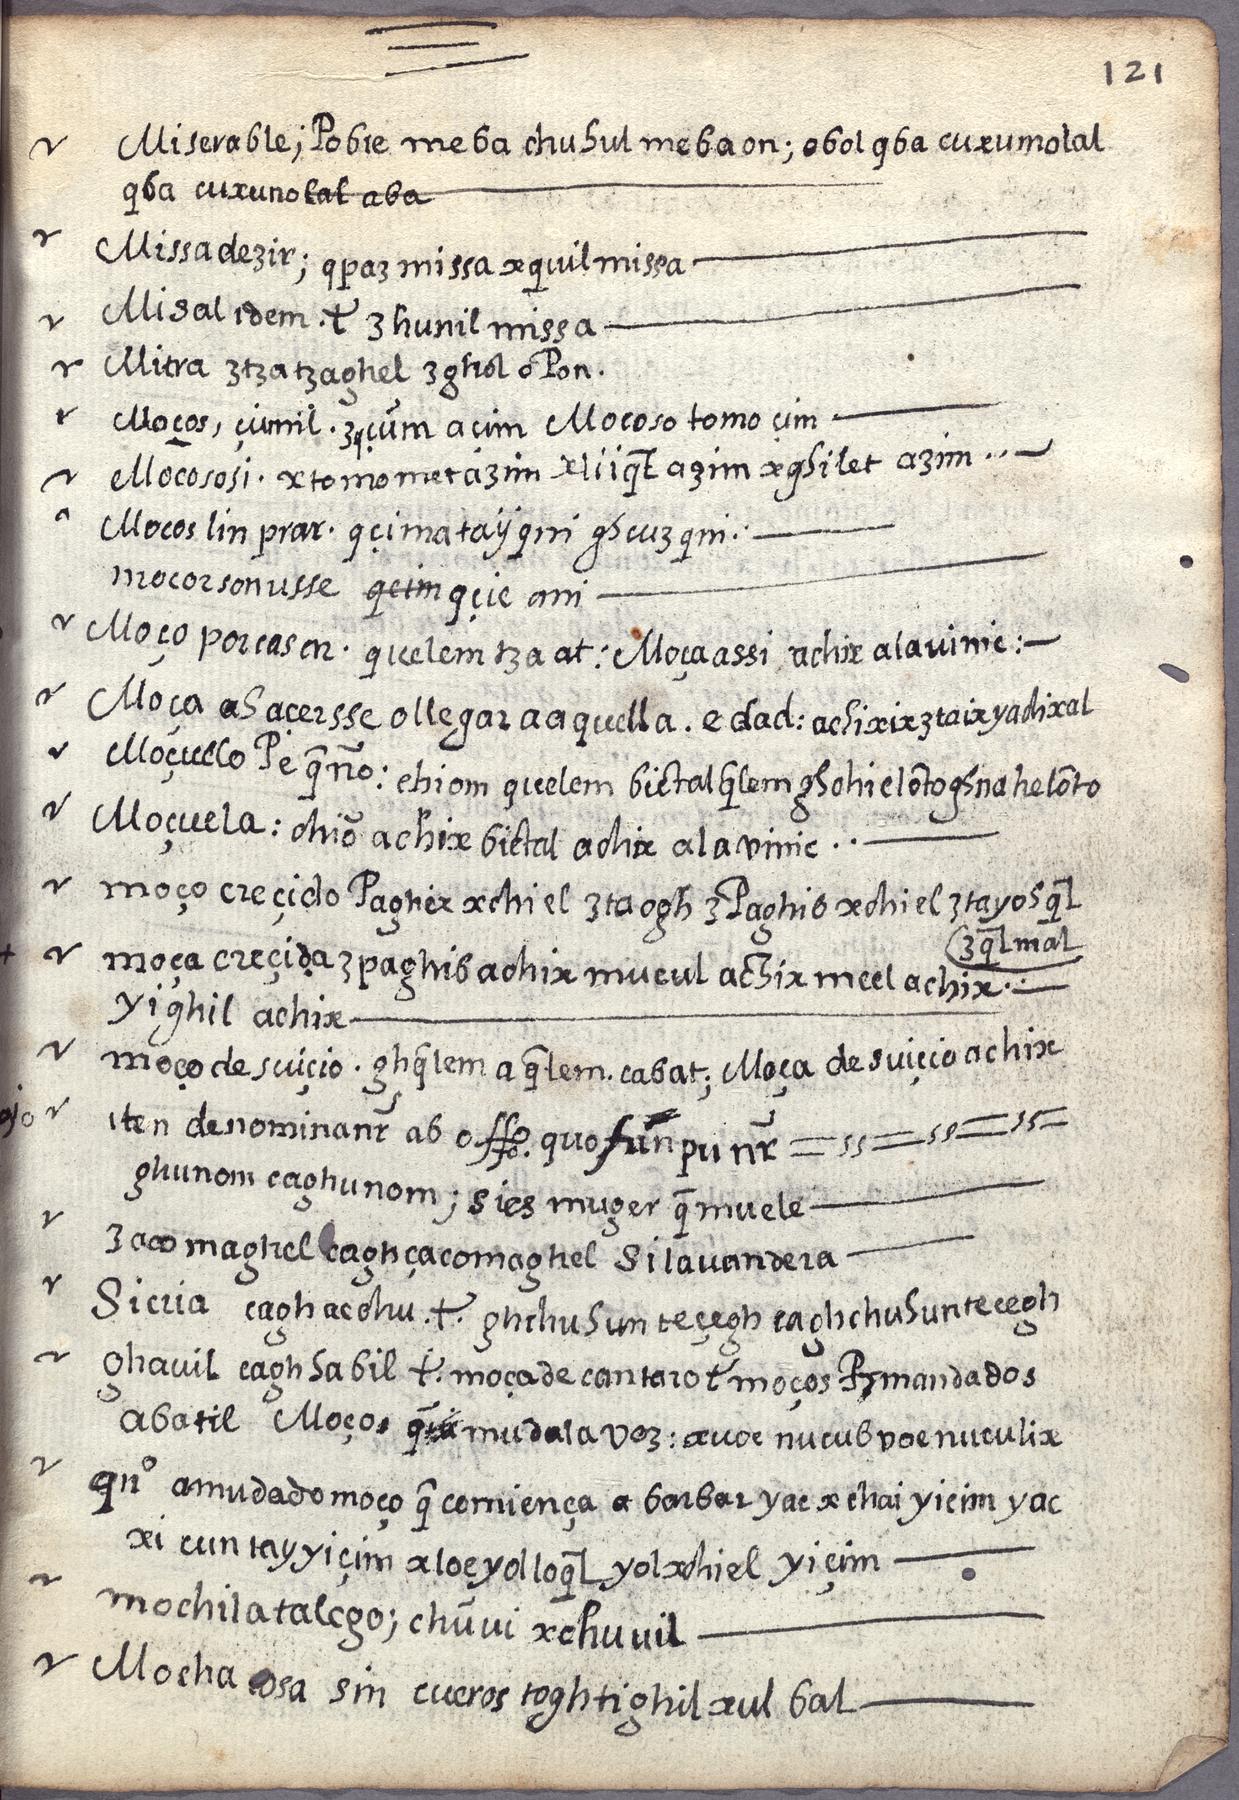 121
Miserable; Pobre meba chuhul mebaon; obol qba cuxumolal
qba cuxunolal aba
Missa dezir; qpaz missa xquil missa
Misal idem. t 3hunil missa
Mitra 3tzatzaghel 3ghol oPon.
Moços, çimil. 3qçum açim Mocoso tomo çim
Mocososi. xtomometazim xliiql azim xghilet azim
Mocos linprar. qçimatay qni ghcuz qni.
mocorsonusse qcim qçic ani
Moço por casar. quelem tza at: Moça assi achix alavinic:
Moça a hacersse o llegar a aquella. edad: achixix 3taix yachixal
Moçuelo Peqño: chiom quelem bictal qlem ghohielonto ghnahelonto
Moçuela: chiõ achix bictal achix alavinic
moço creçido Paghix xchiel 3taogh 3Paghib xchiel 3tayohql
3ql mal
moça creçida 3paghib achix mucul achix meel achix
yighil achix
moço de suiçio. ghqlem aqlem. cabat; Moça de suiçio achix
iten denominanr ab offo. quo fun punr
ghunom caghunom; si es muger q muele
3acomaghel caghçacomaghel Si lavandera
Si cria cagh acchu. t. ghchuhunteçegh caghchuhuntecegh
ghavil caghhabil t. moça de cantaro t moços Pa mandados
abatil Moços q muda la voz: xuoc nucub voc nuculix
qno a mudado moço q comiença a barbar yac xchai yicim yac
xi cuntay yiçim xloc yolloql yolxchiel yiçim
mochila talego; chũvi xchuvil
Mocha cosa sin cueros toghtighil xulbal